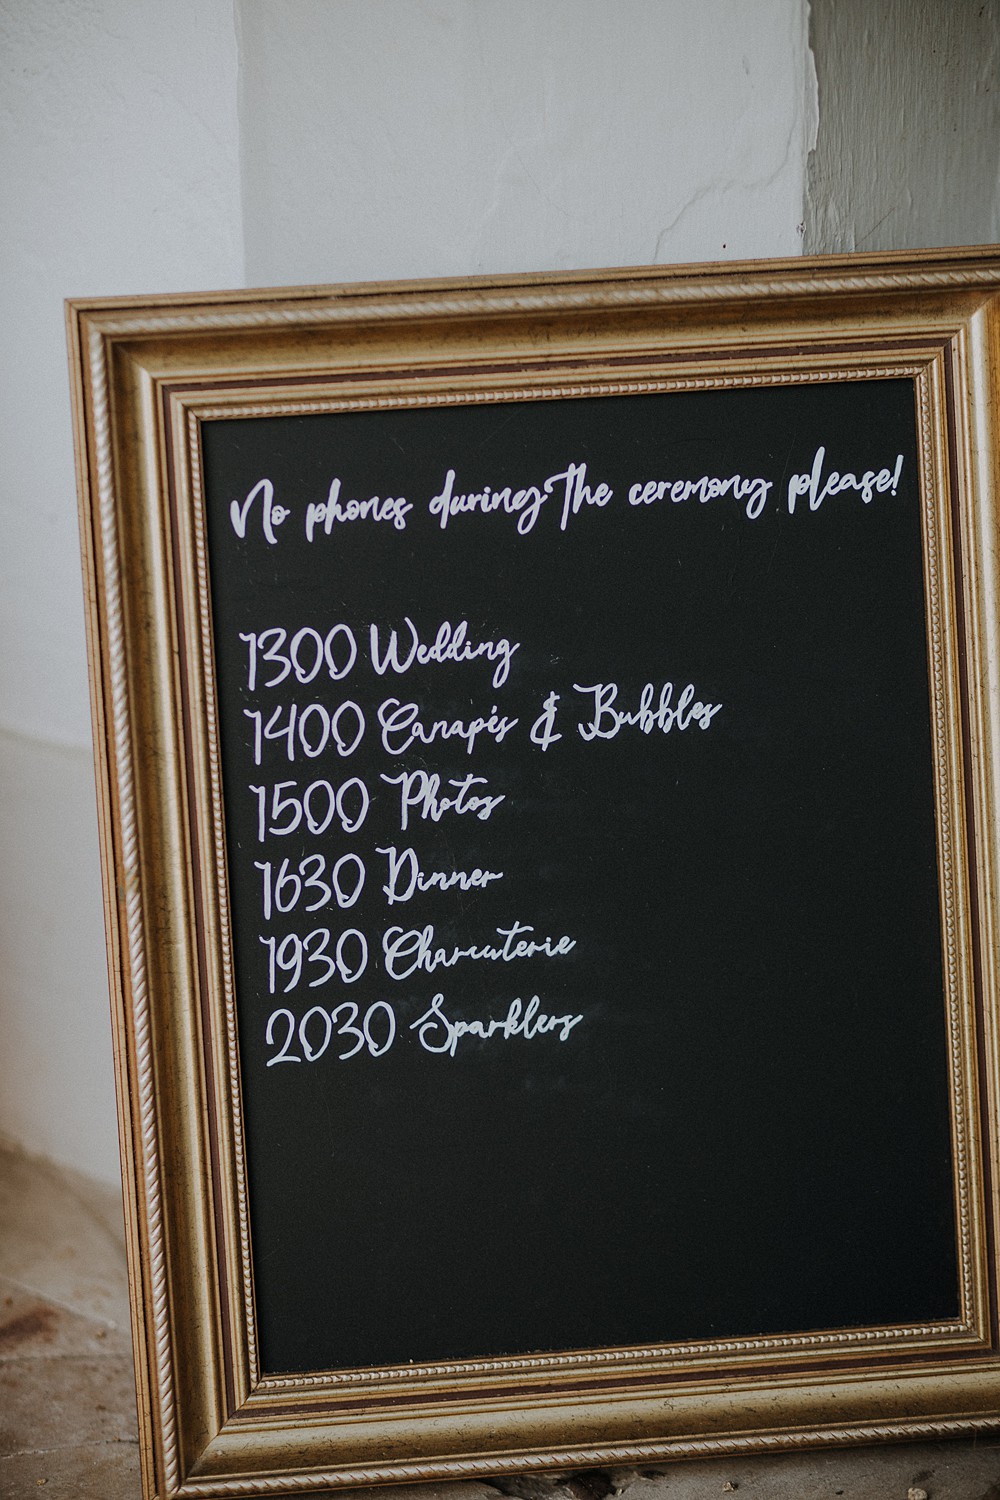 No phones during the ceremony please!
1300 Wedding
1400 Canapés & Bubbles
1500 Photos
1630 Dinner
1930 Charcuterie
2030 Sparklers